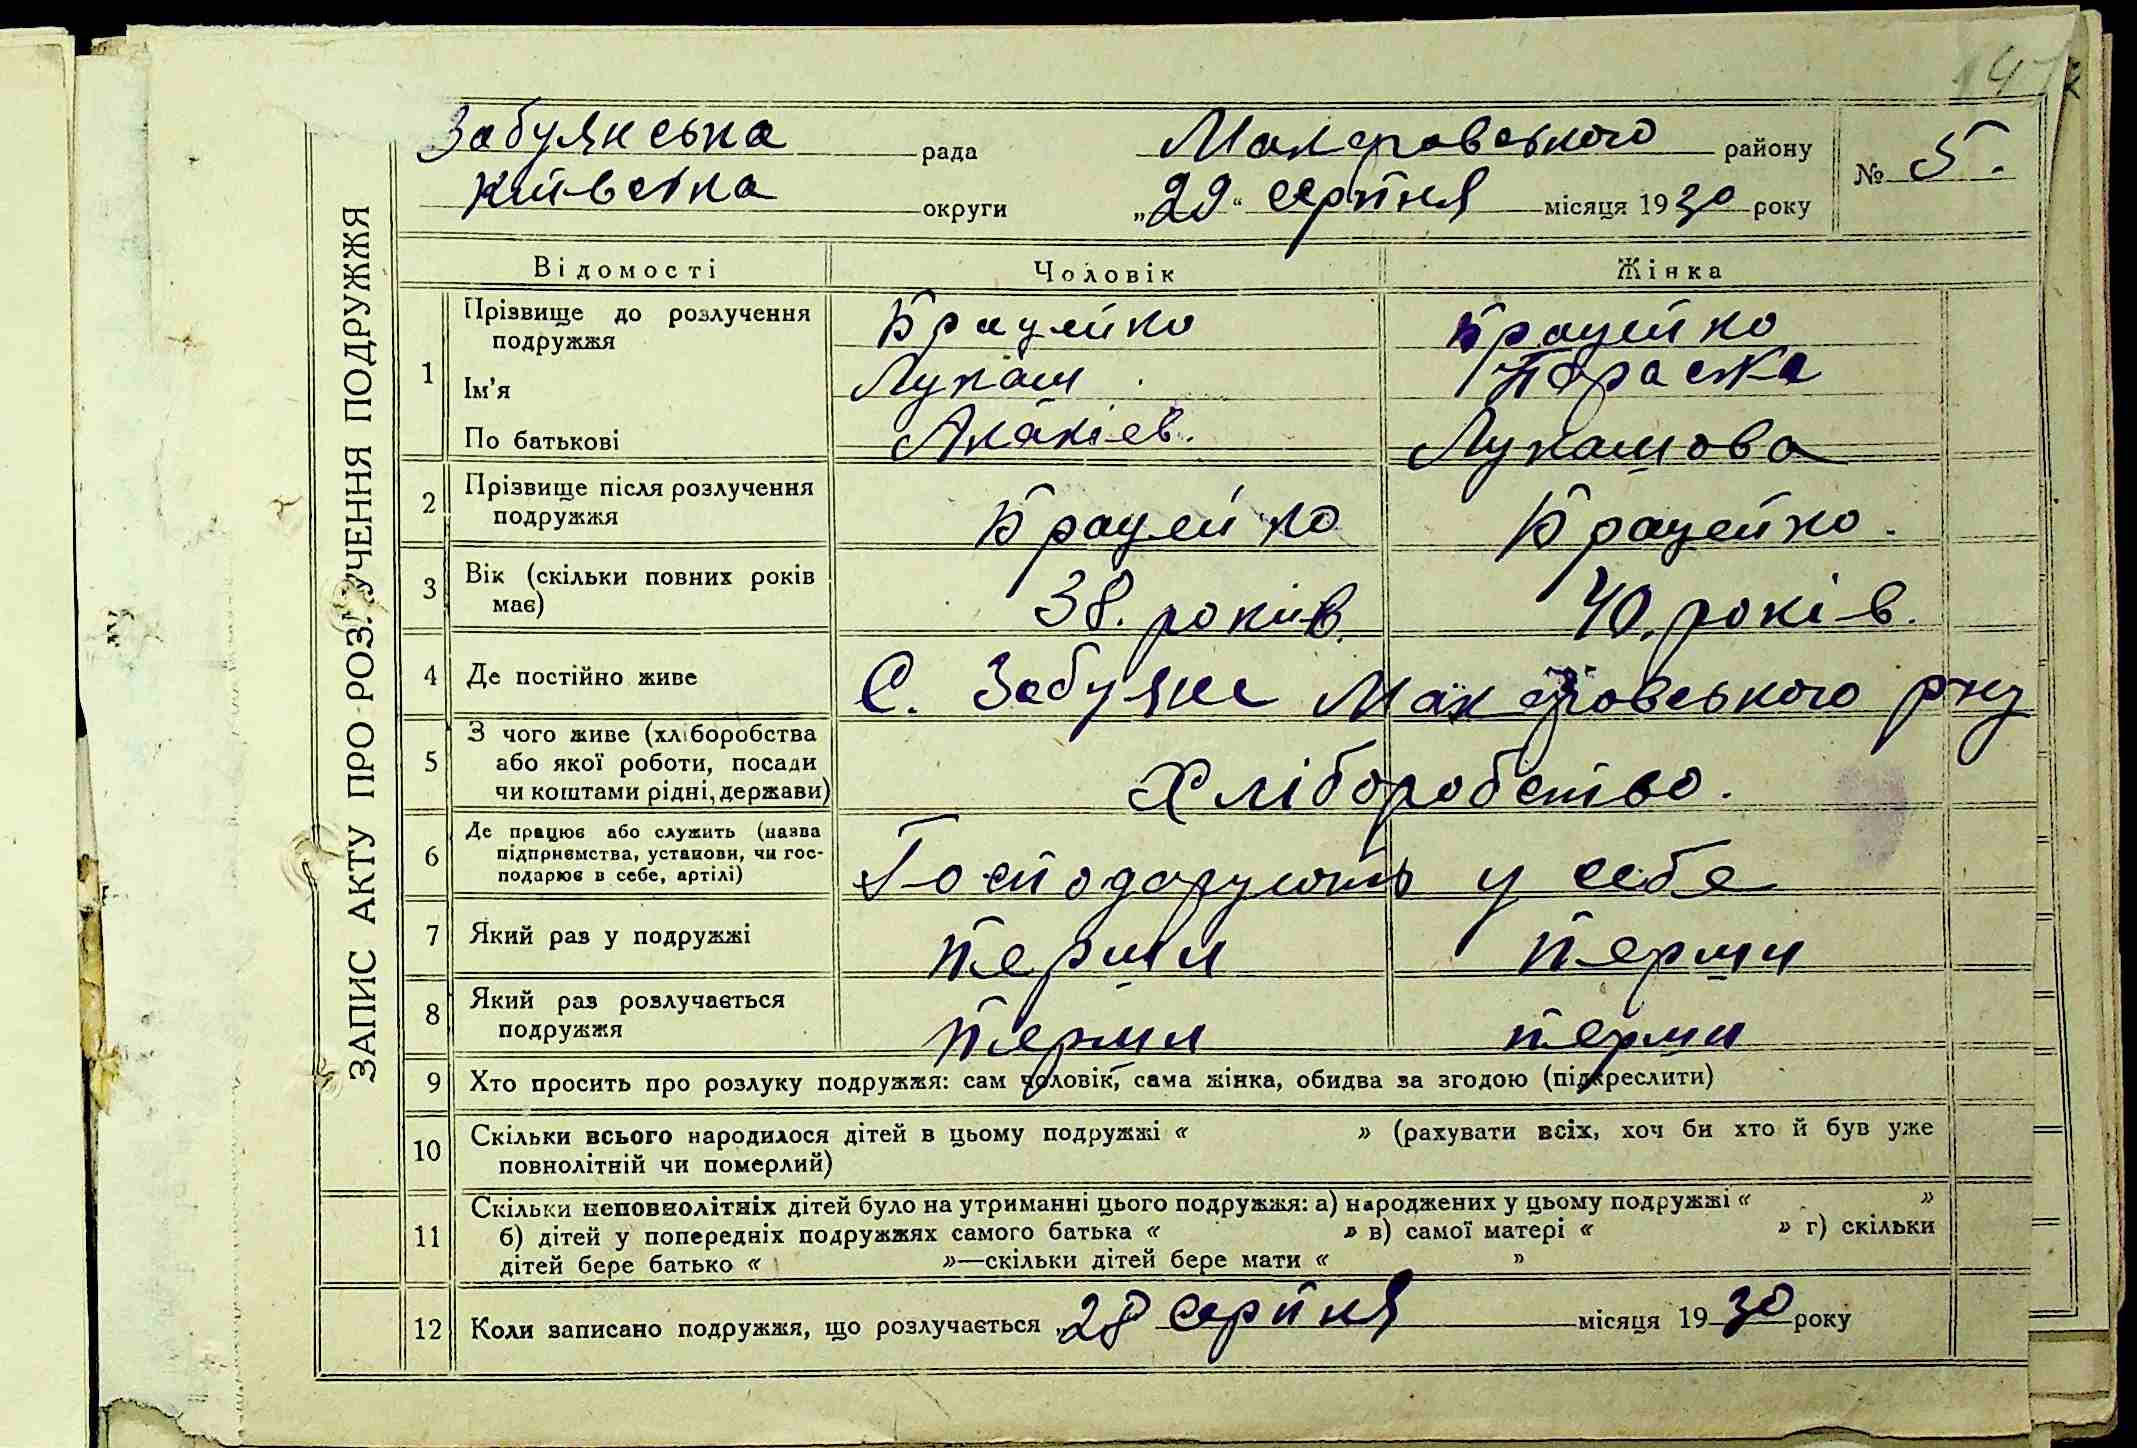 147
ЗАПИС АКТУ ПРО РОЗЛУЧЕННЯ ПОДРУЖЖЯ
Забуянська рада Макаровського району № 5.
Київська округи „29“ серпня місяця 1930 року
Відомості Чоловік Жінка
1 Прізвище до розлучення подружжя Брацейко Брацейко
Ім'я Лукаш Параска
По батькові Акакіев. Лукашова
2 Прізвище після розлучення подружжя Брацейко Брацейко.
3 Вік (скільки повних років має) 38. років. 40. років.
4 Де постійно живе С. Забуяне Макаровського р-ну
5 З чого живе (хліборобства або якої роботи, посади чи коштами рідні, держави) Хліборобство.
6 Де працює або служить (назва підприємства, установи, чи господарює в себе, артілі) Господарують у себе
7 Який раз у подружжі Перши Перши
8 Який раз розлучається подружжя Перши Перши
9 Хто просить про розлуку подружжя: сам чоловік, сама жінка, обидва за згодою (підкреслити)
10 Скільки всього народилося дітей в цьому подружжі « » (рахувати всіх, хоч би хто й був уже
повнолітній чи померлий)
11 Скільки неповнолітніх дітей було на утриманні цього подружжя: а) народжених у цьому подружжі « »
б) дітей у попередніх подружжях самого батька « » в) самої матері « » г) скільки
дітей бере батько « »—скільки дітей бере мати « »
12 Коли записано подружжя, що розлучається „28 серпня місяця 1930 року